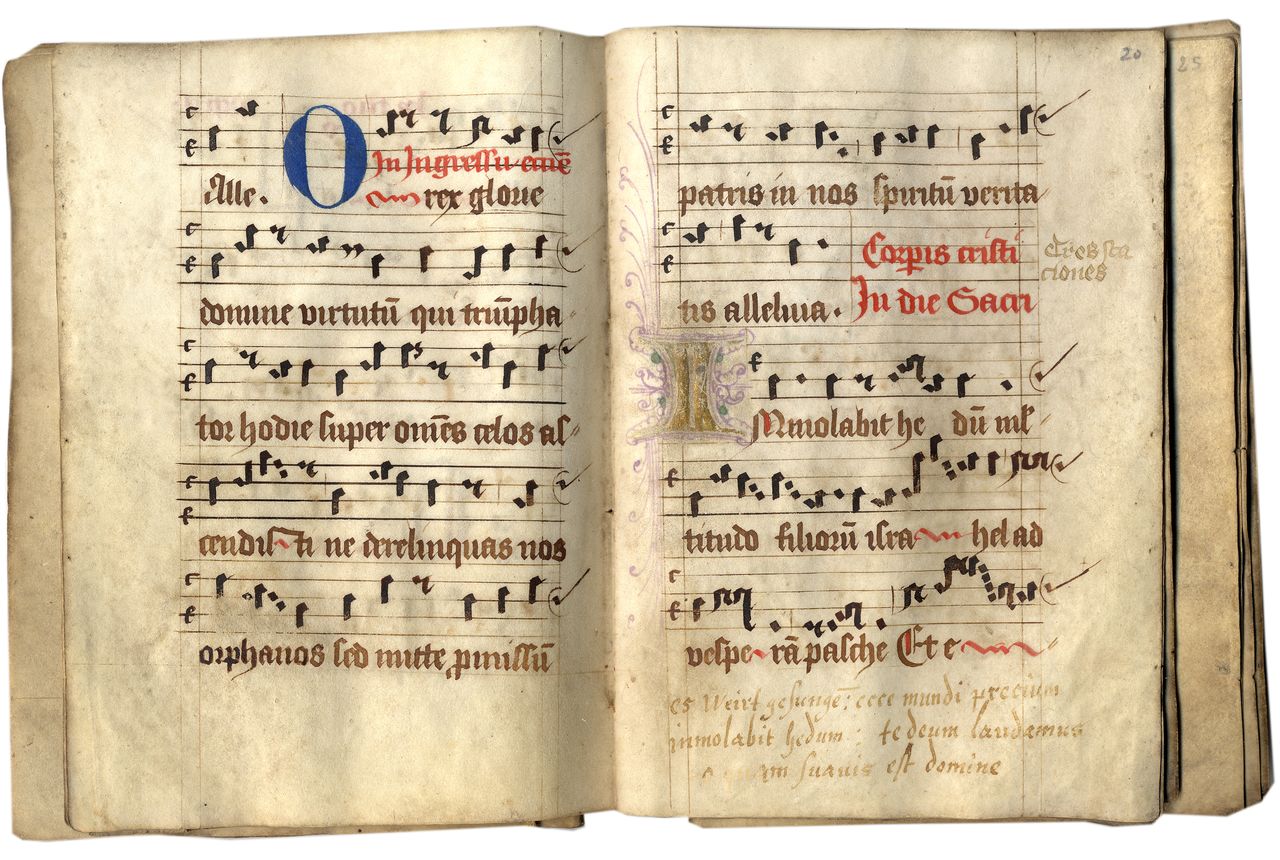 Alle. O In Ingressu
rex glorie
domine virtutū qui triūpha
tor hodie super om̄es celos as
cendisti ne derelinquas nos
orphanos sed mitte ꝓmissū
20
25
patris in nos spiritū verita
tis alleluia. Corpis cristi
In die Sacri
Tres sta
ciones
IMmolabit hedū ml̄
titudo filiorū israhel ad
vesperā pasche Et e
es Weirt gesungē: ecce mundi precium
inmolabit hedum: te deum laudamus
o quam suavis est domine